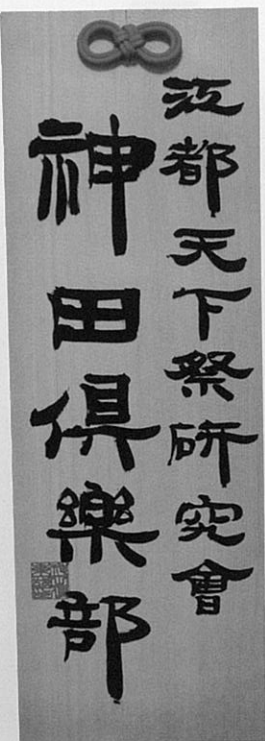 江都天下祭研究會
神田倶樂部